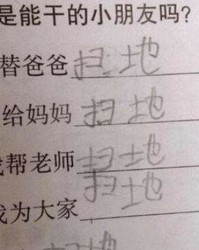 是能干的小朋友吗?
替爸爸扫地
给妈妈扫地
帮老师扫地
我为大家扫地
扫地